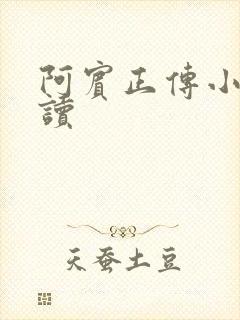 阿賓正傳小
讀
天蚕土豆